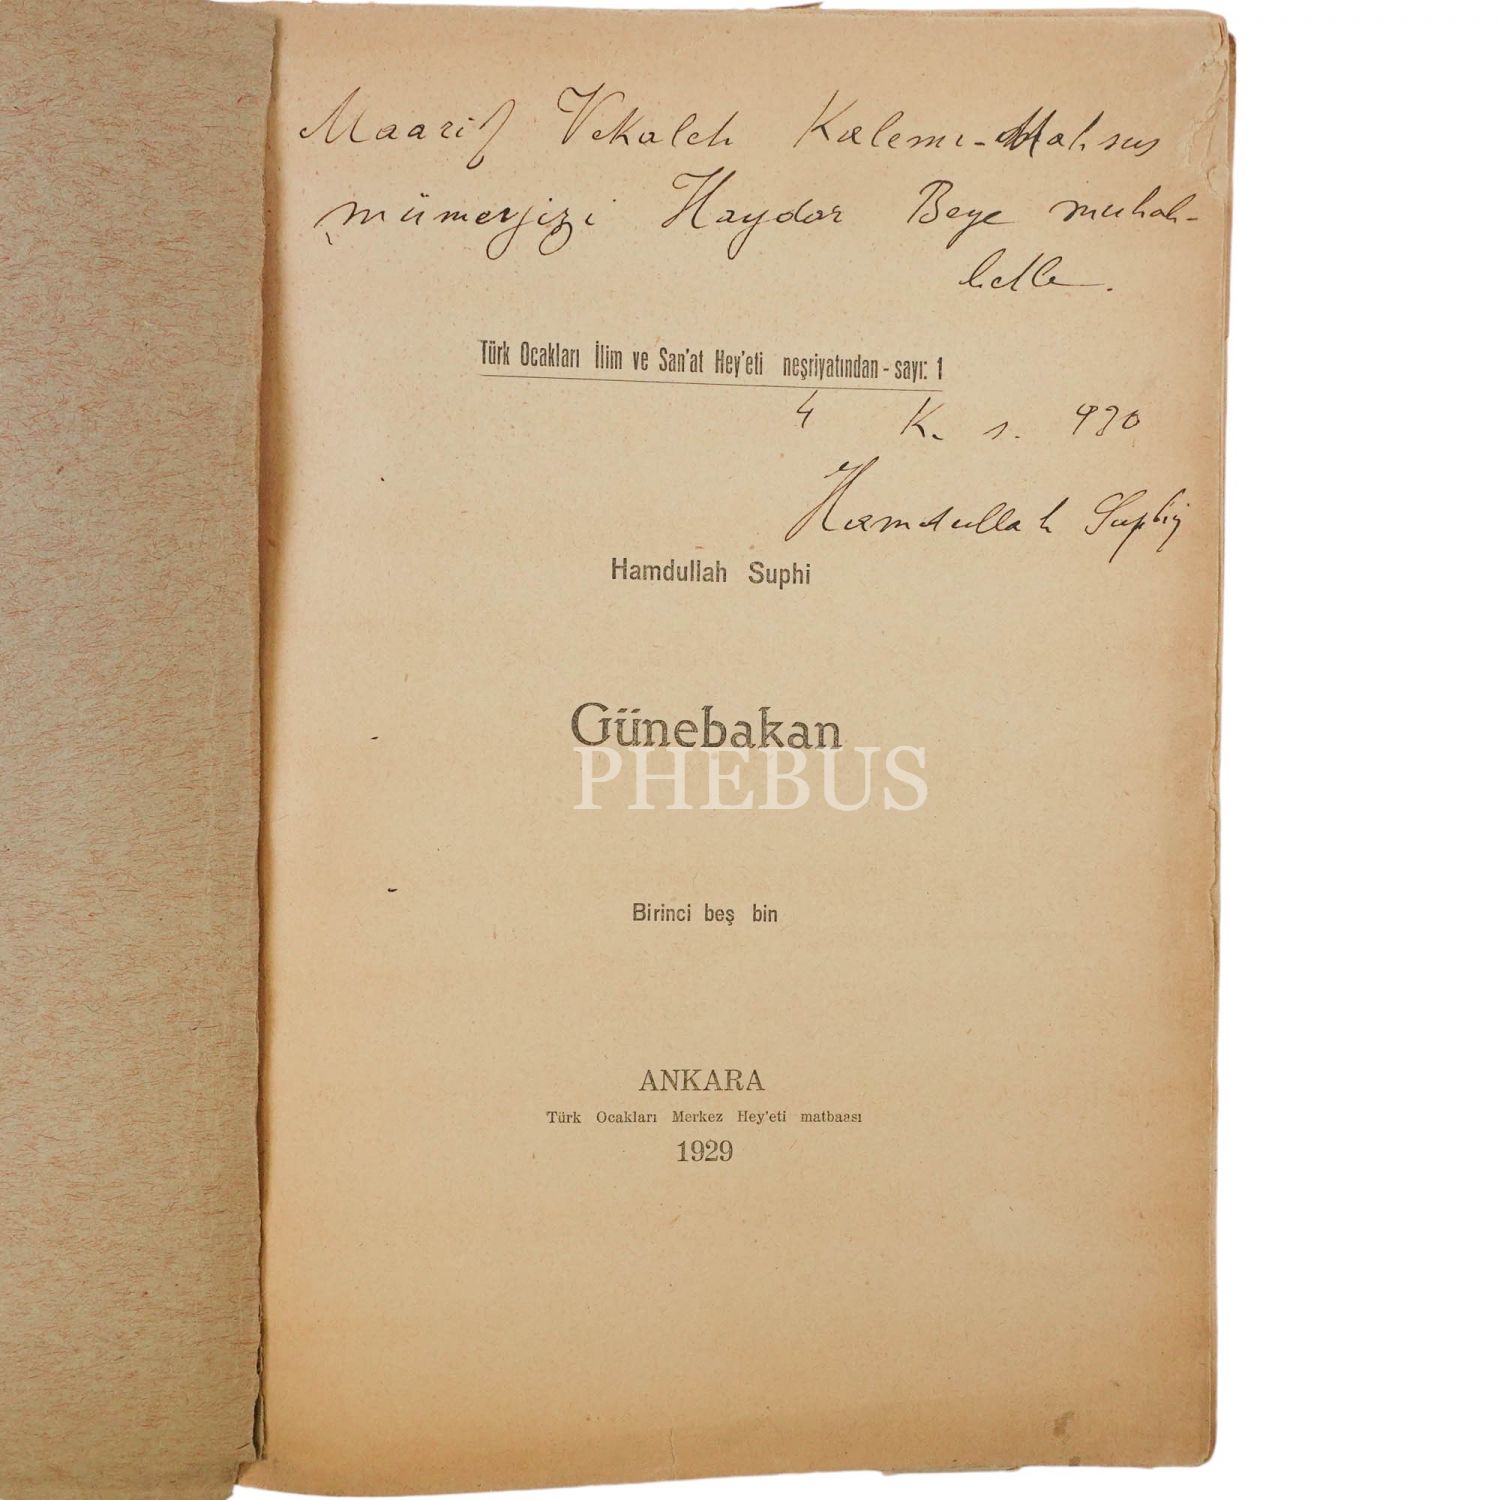 Maarif Vekaleti Kalemi-Mahsus
mümeyizi Haydar Beye muhab-
betle.
Türk Ocakları İlim ve San'at Hey'eti neşriyatından - sayı: 1
4 K. s. 930
Hamdullah Suphi
Hamdullah Suphi
Günebakan
PHEBUS
Birinci beş bin
ANKARA
Türk Ocakları Merkez Hey'eti matbaası
1929